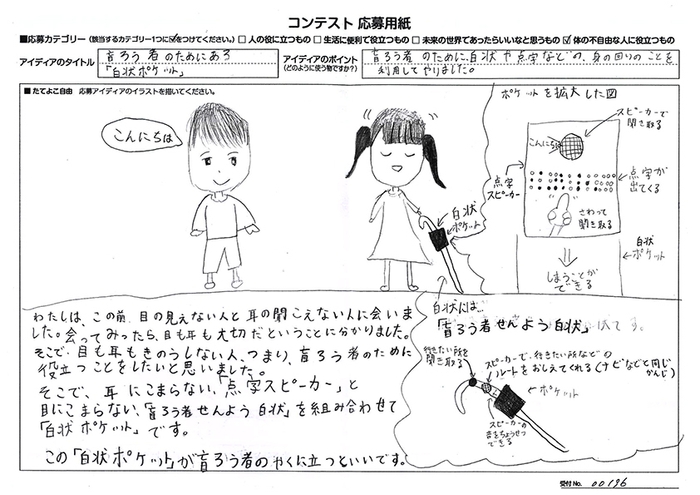 コンテスト 応募用紙
■応募カテゴリー（該当するカテゴリー1つに☑をつけてください。）□ 人の役に立つもの □ 生活に便利で役立つもの □ 未来の世界であったらいいなと思うもの ☑ 体の不自由な人に役立つもの
アイディアのタイトル
盲ろう者のためにある
「白状ポケット」
アイディアのポイント
（どのように使う物ですか?）
盲ろう者のために、白状や点字などの、身の回りのことを
利用してやりました。
■たてよこ自由 応募アイディアのイラストを描いてください。
こんにちは
白状
ポケット
ポケットを拡大した図
スピーカーで
聞き取る
こんにちは
点字
スピーカー
点字が
出てくる
さわって
聞き取る
白状
ポケット
しまうことが
できる
わたしは、この前、目の見えない人と耳の聞こえない人に会いま
した。会ってみったら、目も耳も大切だということに分かりました。
そこで、目も耳もきのうしない人、つまり、盲ろう者のために
役立つことをしたいと思いました。
そこで、耳にこまらない、「点字スピーカー」と
目にこまらない、「盲ろう者せんよう白状」を組み合わせて
「白状ポケット」です。
この「白状ポケット」が盲ろう者のやくに立つといいです。
白状には…
「盲ろう者せんよう白状」
行きたい所を
聞き取る
スピーカーで、行きたい所などの
ルートをおしえてくれる(ナビなどと同じ
かんじ)
ポケット
スピーカーの
音をちょうせつ
できる
受付No. 00196